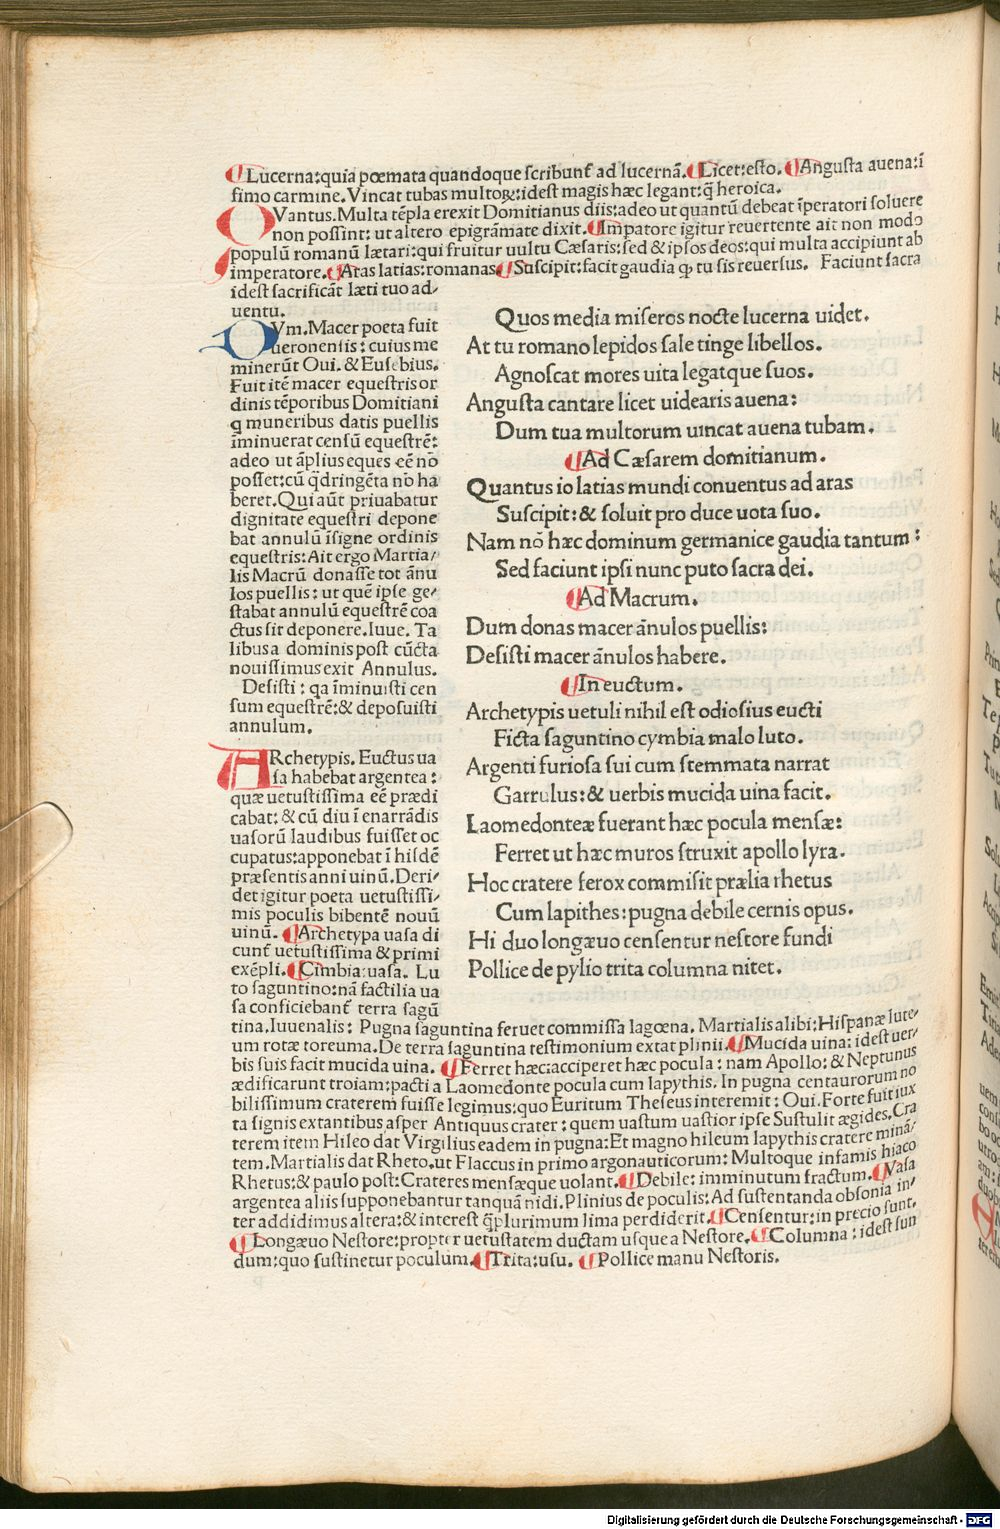 ¶Lucerna:quia pœmata quandoque scribunt᷒ ad lucernã.¶Licet:esto.¶Angusta auena:ĩ
fimo carmine.Vincat tubas multoꝝ:idest magis hæc legant:q̃ heroica.
QVantus.Multa tẽpla erexit Domitianus diis:adeo ut quantũ debeat ĩperatori soluere
non possint: ut altero epigrãmate dixit.¶Impatore igitur reuertente ait non modo
populũ romanũ lætari:qui fruitur uultu Cæsaris:sed & ipsos deos:qui multa accipiunt ab
imperatore.¶Aras latias:romanas¶Suscipit:facit gaudia ꝙ tu sis reuersus. Faciunt sacra
idest sacrificãt læti tuo ad/
uentu.
DVm.Macer poeta fuit
ueronensis:cuius me
minerũt Oui.& Eusebius.
Fuit itẽ macer equestris or
dinis tẽporibus Domitiani
q muneribus datis puellis
ĩminuerat censũ equestrẽ:
adeo ut ãplius eques eẽ nõ
posset:cũ q̃dringẽta nõ ha
beret.Qui aũt priuabatur
dignitate equestri depone
bat annulũ ĩsigne ordinis
equestris:Ait ergo Martia/
lis Macrũ donasse tot ãnu
los puellis: ut quẽ ipse ge/
stabat annulũ equestrẽ coa
ctus sit deponere.Iuue. Ta
libus a dominis post cũcta
nouissimus exit Annulus.
Desisti: qa ĩminuisti cen
sum equestrẽ:& deposuisti
annulum.
ARchetypis. Euctus ua
sa habebat argentea:
quæ uetustissima eẽ prædi
cabat: & cũ diu ĩ enarrãdis
uasorũ laudibus fuisset oc
cupatus:apponebat ĩ hisdẽ
præsentis anni uinũ.Deri/
det igitur poeta uetustissi/
mis poculis bibentẽ nouũ
uinũ. ¶Archetypa uasa di
cunt᷒ uetustissima & primi
exẽpli.¶Cimbia:uasa. Lu
to saguntino:nã factilia ua
sa conficiebant᷒ terra sagũ
Quos media miseros nocte lucerna uidet.
At tu romano lepidos sale tinge libellos.
Agnoscat mores uita legatque suos.
Angusta cantare licet uidearis auena:
Dum tua multorum uincat auena tubam.
¶Ad Cæsarem domitianum.
Quantus io latias mundi conuentus ad aras
Suscipit:& soluit pro duce uota suo.
Nam nõ hæc dominum germanice gaudia tantum:
Sed faciunt ipsi nunc puto sacra dei.
¶Ad Macrum.
Dum donas macer ãnulos puellis:
Desisti macer ãnulos habere.
¶In euctum.
Archetypis uetuli nihil est odiosius eucti
Ficta saguntino cymbia malo luto.
Argenti furiosa sui cum stemmata narrat
Garrulus:& uerbis mucida uina facit.
Laomedonteæ fuerant hæc pocula mensæ:
Ferret ut hæc muros struxit apollo lyra.
Hoc cratere ferox commisit prælia rhetus
Cum lapithes:pugna debile cernis opus.
Hi duo longæuo censentur nestore fundi
Pollice de pylio trita columna nitet.
tina.Iuuenalis: Pugna saguntina feruet commissa lagœna. Martialis alibi:Hispanæ lute/
um rotæ toreuma.De terra saguntina testimonium extat plinii.¶Mucida uina: idest uer/
bis suis facit mucida uina. ¶Ferret hæc:acciperet hæc pocula: nam Apollo: & Neptunus
ædificarunt troiam:pacti a Laomedonte pocula cum lapythis. In pugna centaurorum no
bilissimum craterem fuisse legimus:quo Euritum Theseus interemit: Oui. Forte fuit iux
ta signis extantibus asper Antiquus crater: quem uastum uastior ipse Sustulit ægides.Cra
terem item Hileo dat Virgilius eadem in pugna:Et magno hileum lapythis cratere minã/
tem.Martialis dat Rheto.ut Flaccus in primo argonauticorum: Multoque infamis hiaco
Rhetus:& paulo post: Crateres mensæque uolant.¶Debile: imminutum fractum.¶Vasa
argentea aliis supponebantur tanquã nidi.Plinius de poculis: Ad sustentanda obsonia in/
ter addidimus altera:& interest q̃plurimum lima perdiderit.¶Censentur:in precio sunt.
¶Longæuo Nestore:propter uetustatem ductam usque a Nestore.¶Columna:idest fun
dum:quo sustinetur poculum.¶Trita:usu. ¶Pollice manu Nestoris.
Digitalisierung gefördert durch die Deutsche Forschungsgemeinschaft - DFG